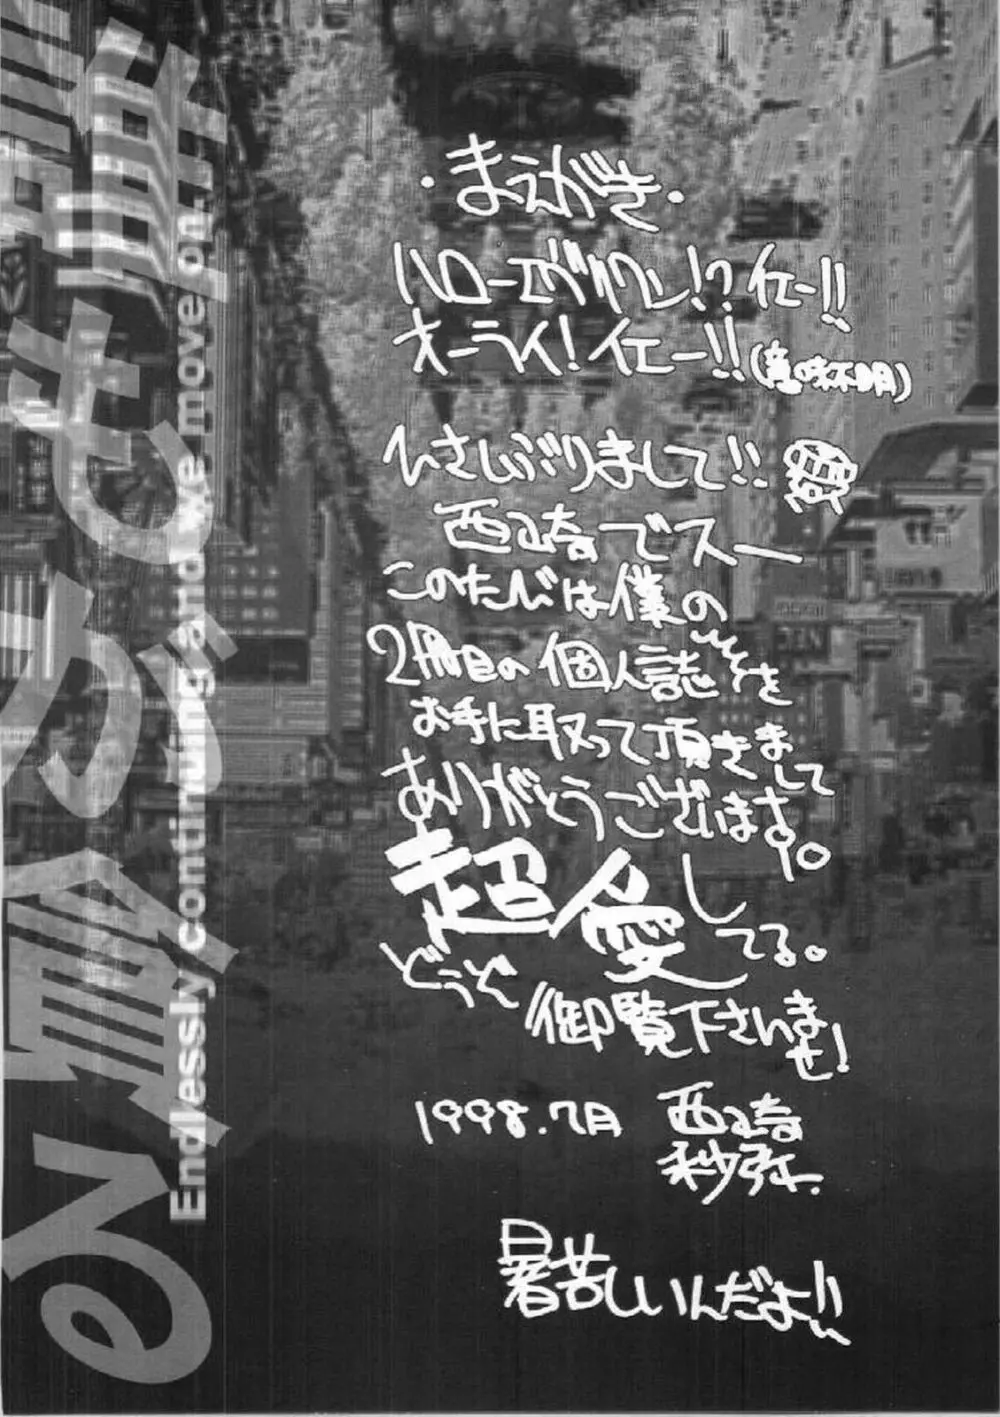 ・まえがき・
ハローエヴリワン!?イエー!!
オーライ!イエー!!(意味不明)
ひさしぶりまして!!
西崎でスー
このたびは僕の
2冊目の個人誌を
お手に取って頂きまして
ありがとうございます。
超愛してる。
どうぞ御覧下さいませ!
1998.7月 西崎
暑苦しいんだよ!!
Endlessly continuing and we move on.